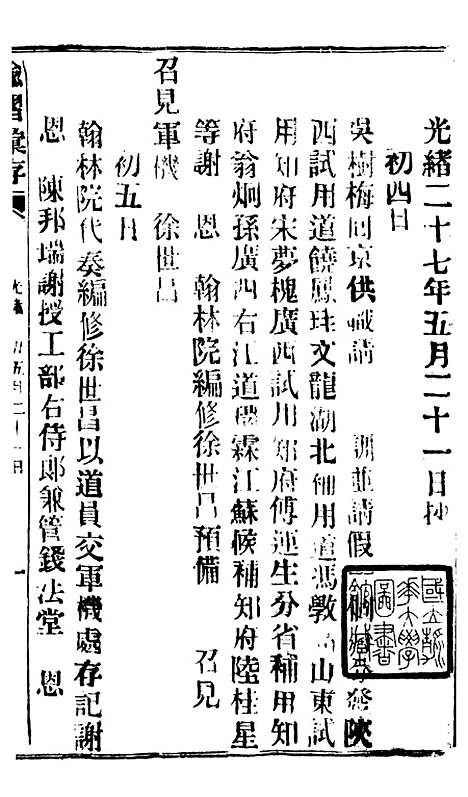 光緒二十七年五月二十一日抄
初四日
吳樹梅回京供職請 訓並請假 發陝
西試用道饒鳳 文龍湖北補用道馮敦 山東試
用知府宋夢槐廣西試用知府傅運生分省補用知
府翁炯孫廣西右江道 霖江蘇候補知府陸桂星
等謝 恩 翰林院編修徐世昌預備 召見
召見軍機 徐世昌
初五日
翰林院代奏編修徐世昌以道員交軍機處存記謝
恩 陳邦瑞謝授工部右侍郎兼管錢法堂 恩
諭摺彙存
光緒 五月二十一日
一
國立 大學圖書館藏